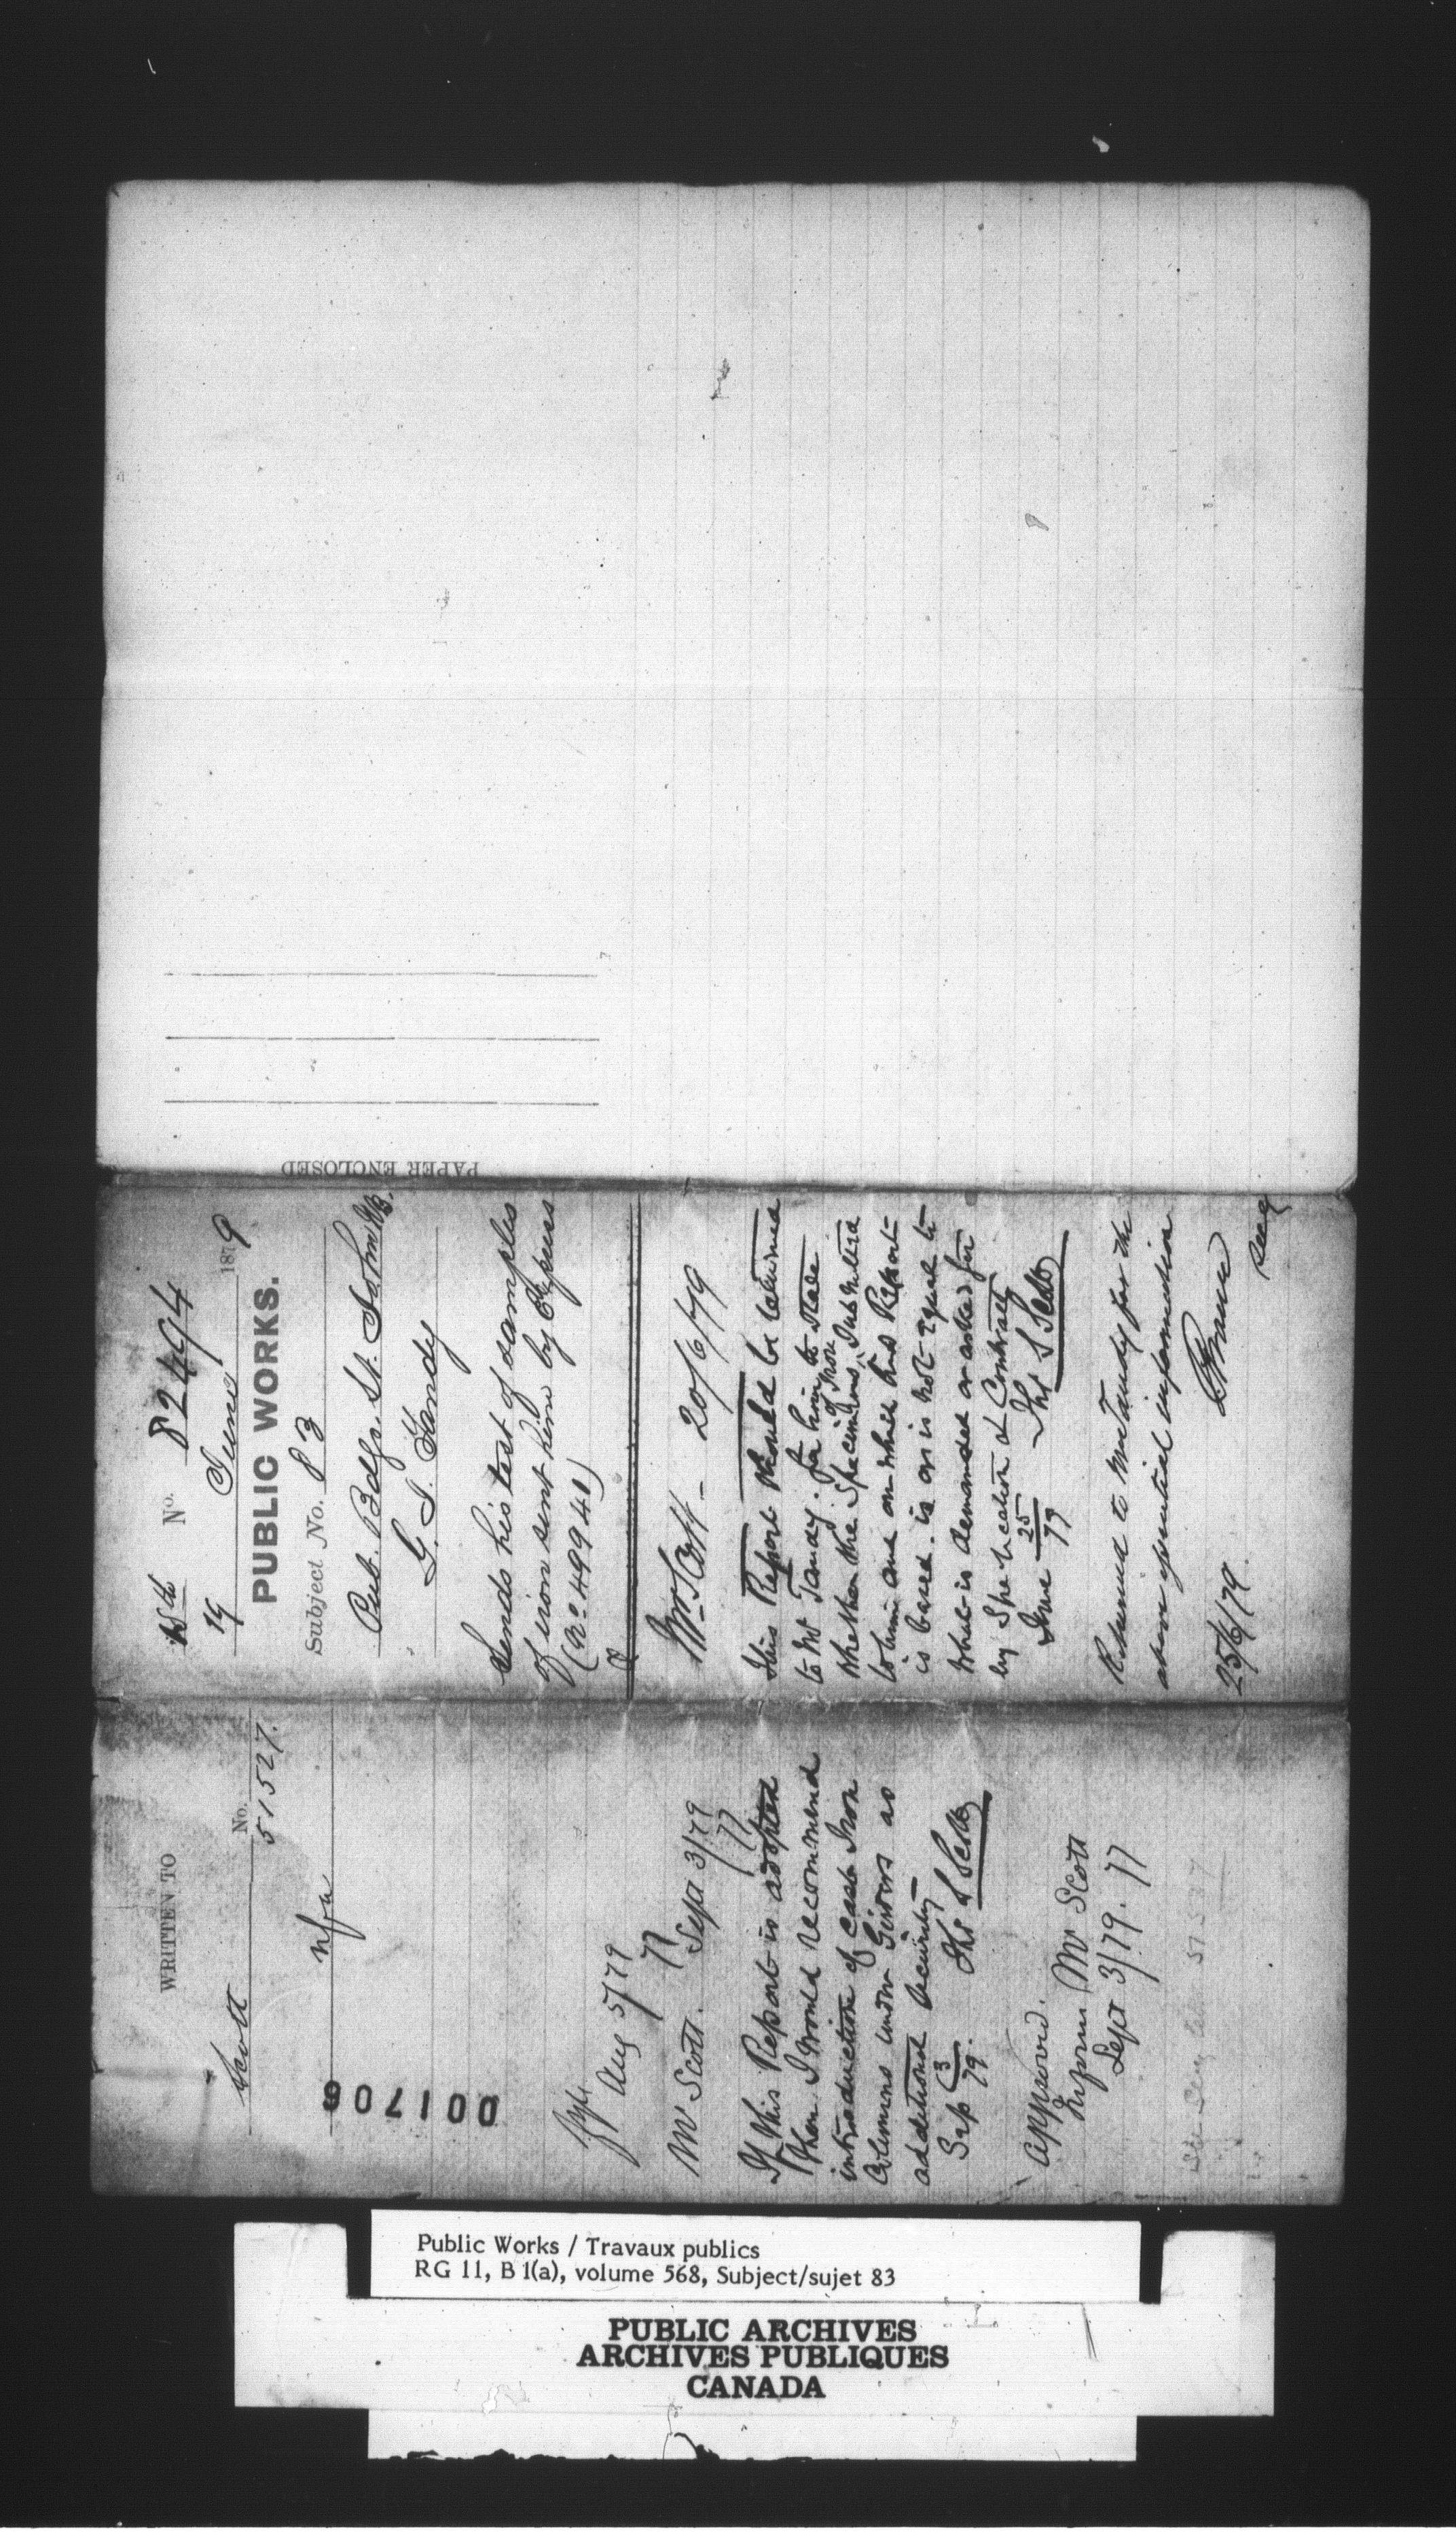 18th No. 82494
19 June 1879
PUBLIC WORKS.
Subject No. 83
Pub. Bdgs. St. John N.B.
G. T. Tandy
Sends his test of samples
of iron sent him by Express
(No 49941)
Mr Scott - 20/6/79
This Report should be returned
to Mr Tandy. for him to state
whether the Specimens of Iron submitted
to him and on which this Report
is based. is or is not equal to
what is demanded or asked for
by Specification & Contract
June 25/79 Thos S Scott
Returned to Mr Tandy for the
above essential information
25/6/79.
Secy
PAPER ENCLOSED
WRITTEN TO
No.
Scott 51527.
nfa
001706
Aug 5/79
Mr Scott. Sept 3/79
If this Report is adopted
then I would recommend
introduction of cast Iron
Columns under Girders as
additional security
Sep 3/79. Thos S Scott
Approved.
Inform Mr Scott
Sept 3/79.
Public Works / Travaux publics
RG 11, B 1(a), volume 568, Subject/sujet 83
PUBLIC ARCHIVES
ARCHIVES PUBLIQUES
CANADA